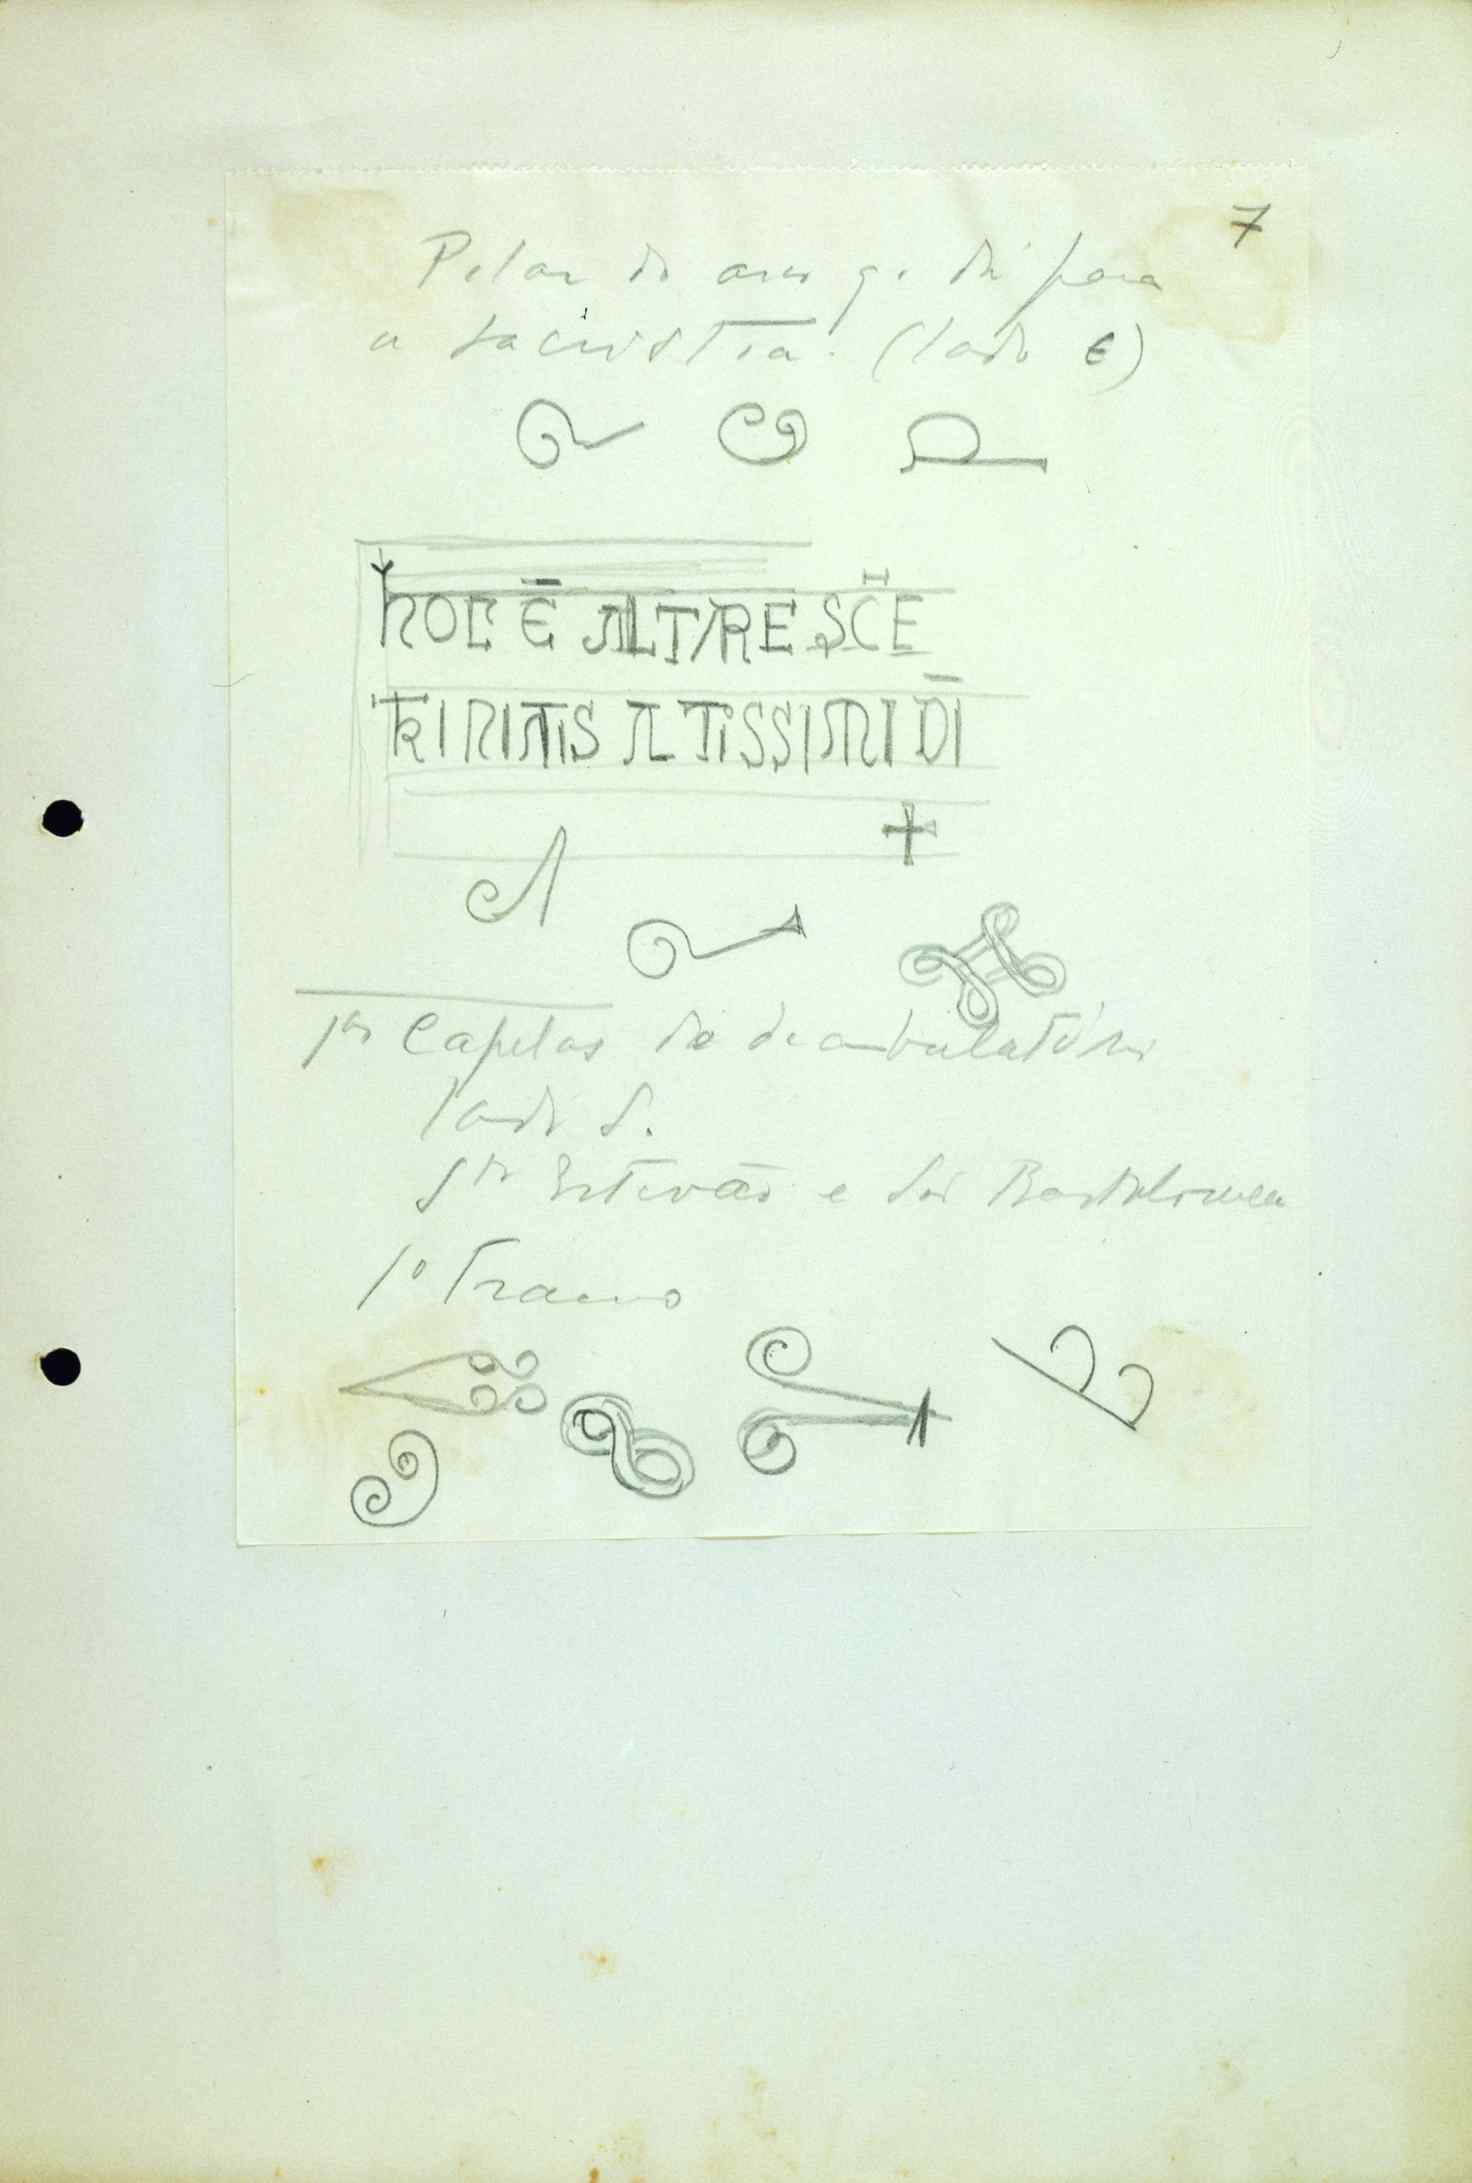 7
Pilar do arco q. dá para
a sacristia. (lado E)
HOC Ē ALTARE SC̄E
TRINITATIS ALTISSIMI DĪ
+
1as Capelas do deambulatório
lado S.
Sto Estevão e São Bartolomeu
1º Tramo